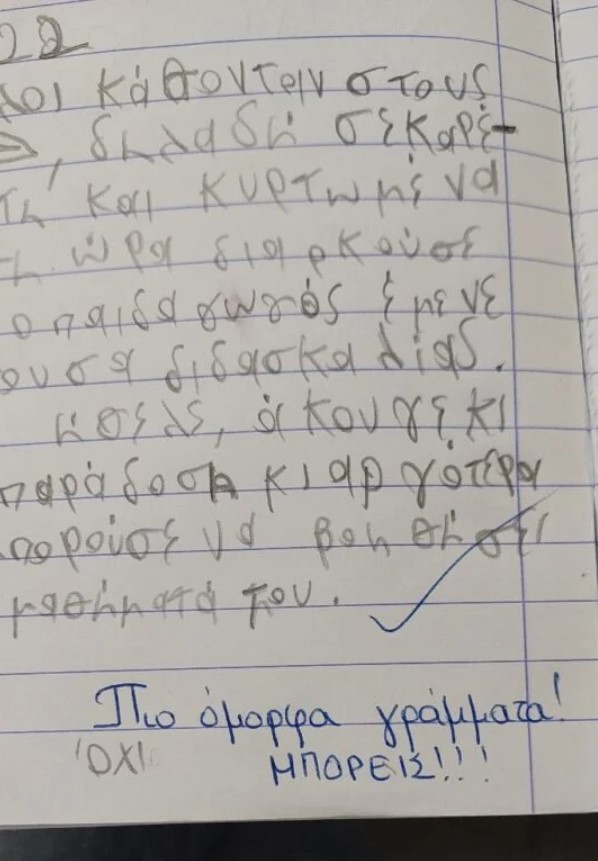 22
λοι κάθονταν στους
, δηλαδή σε καρέ-
τη και κυρτωμένα
η ώρα διαρκούσε
ο παιδαγωγός έμενε
ουσα διδασκαλίας.
ήθελε, άκουγε κι
παράδοση κι αργότερα
πορούσε να βοηθήσει
μαθήματά του.
Πιο όμορφα γράμματα!
ΌΧΙ ΜΠΟΡΕΙΣ!!!